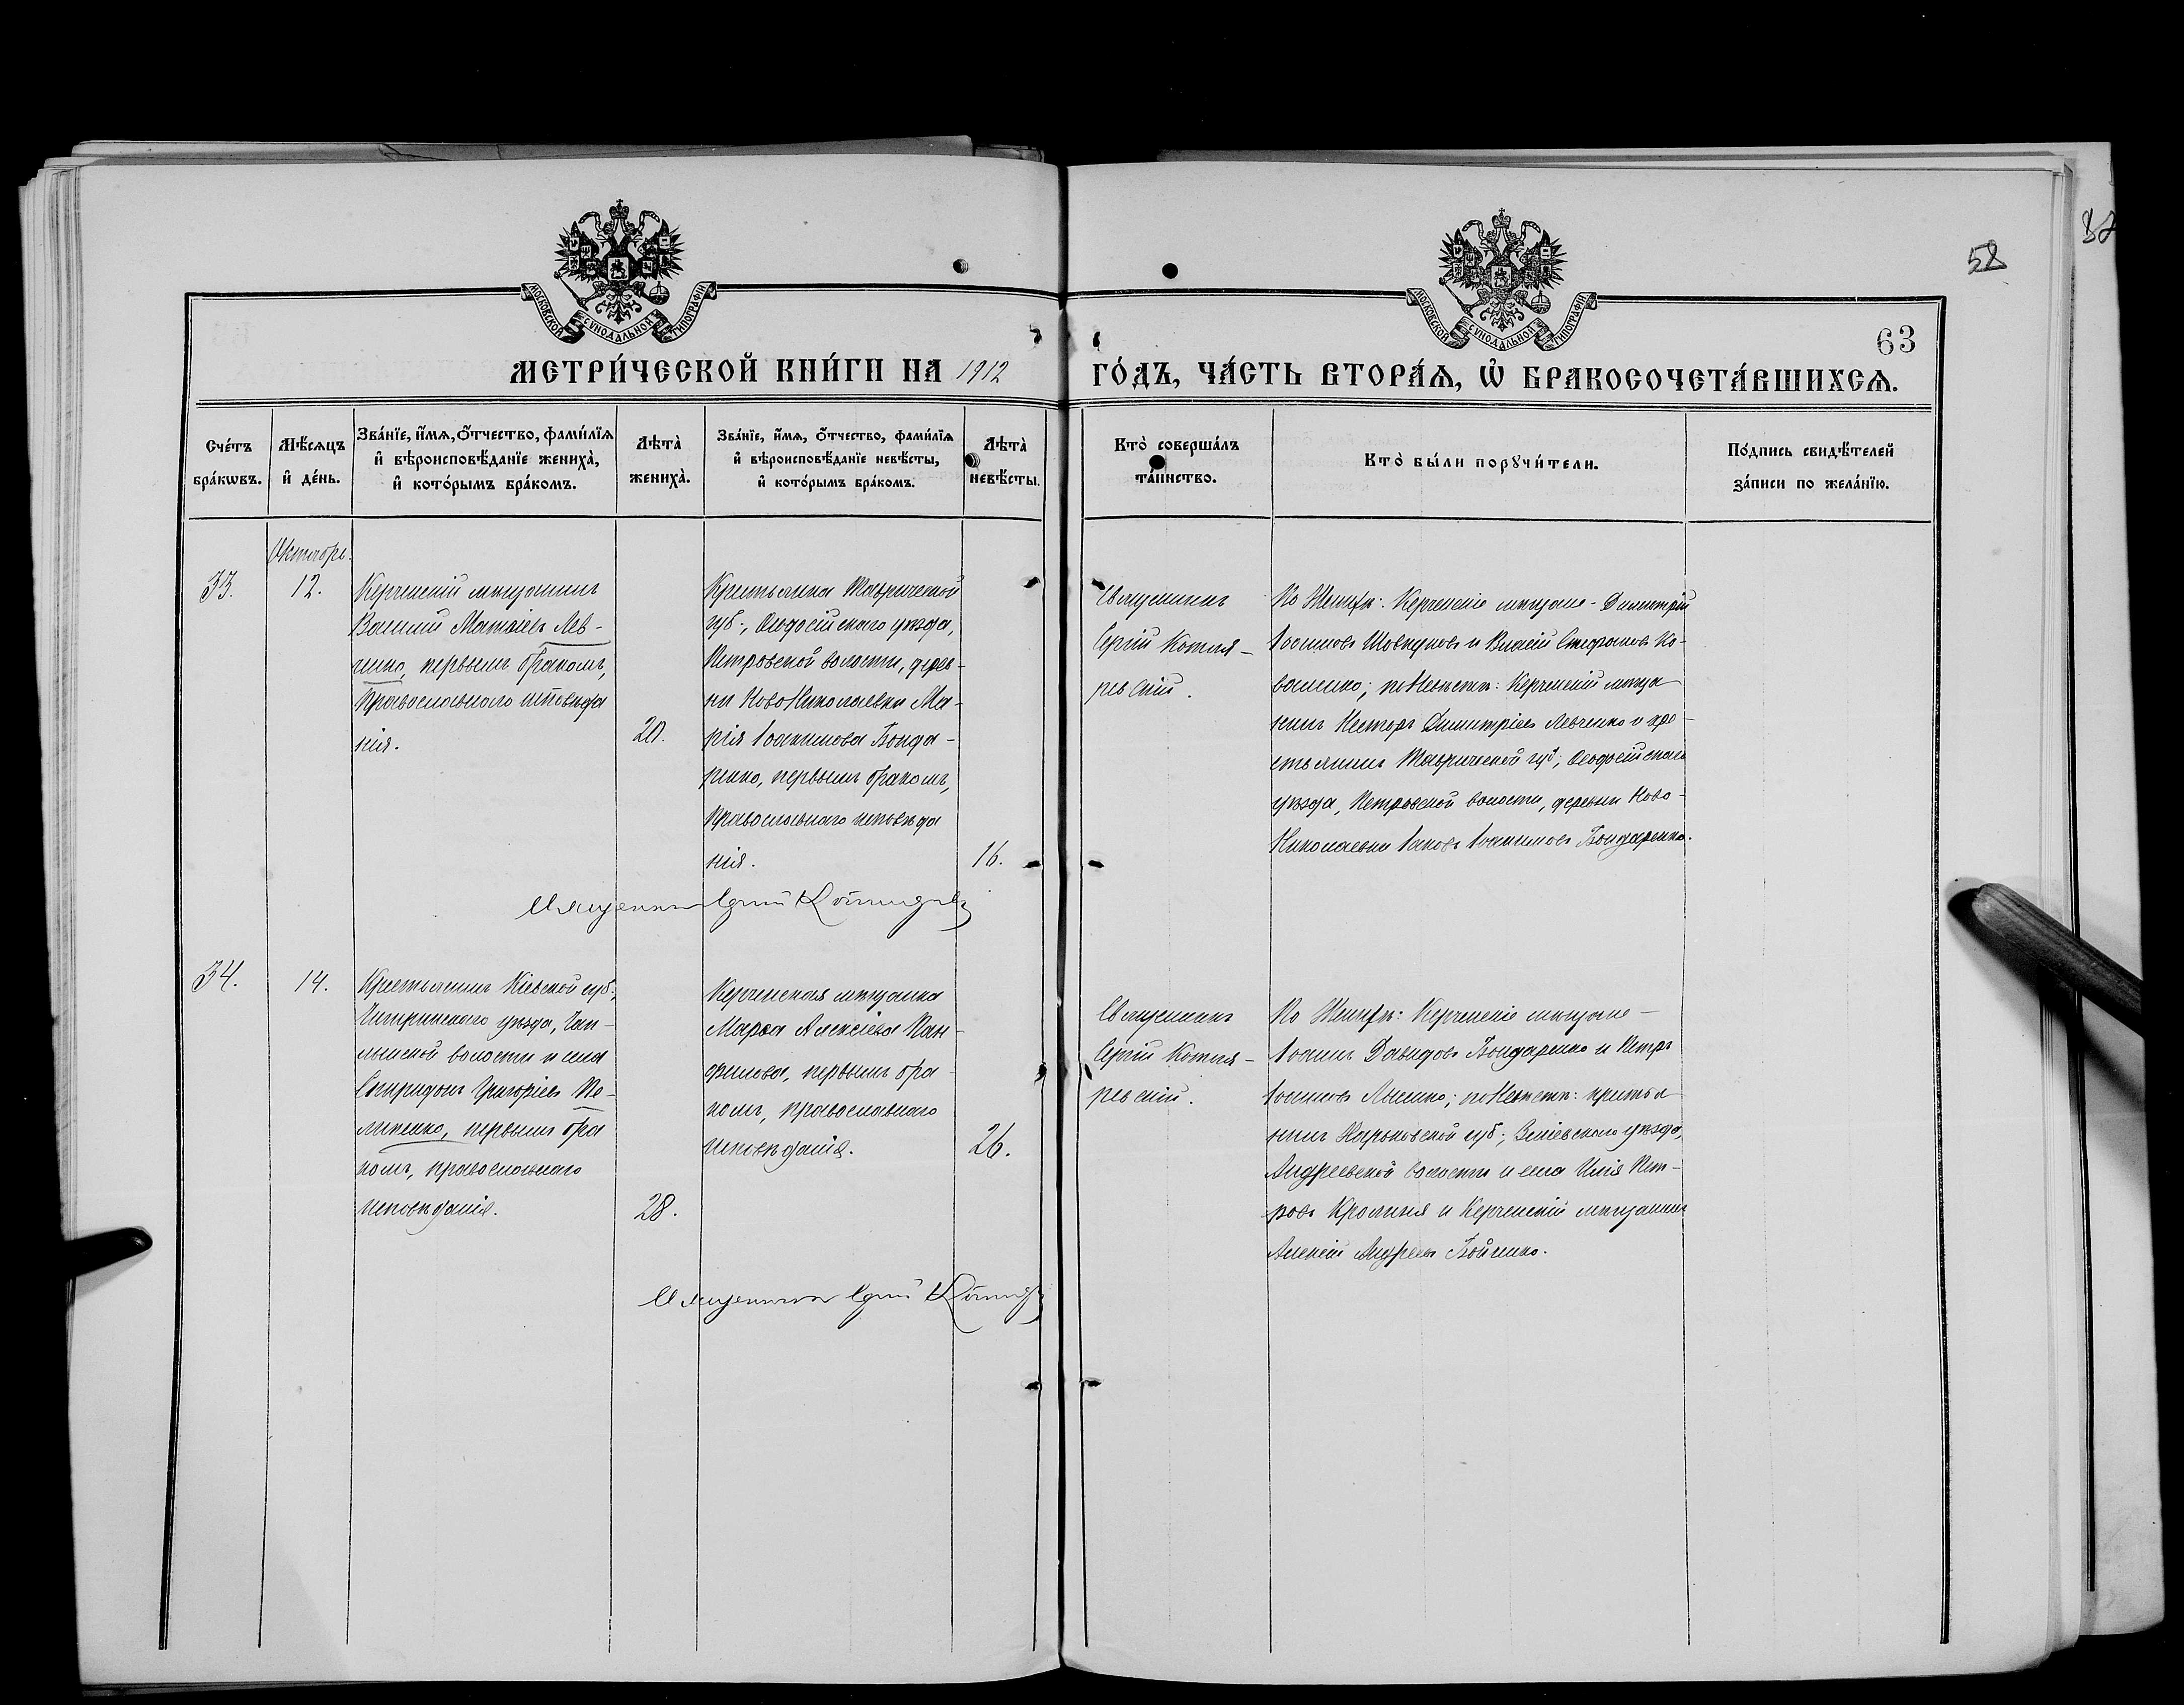 58
63
МОСКОВСКОЙ СѴНОДАЛЬНОЙ ТИПОГРАФІИ
МОСКОВСКОЙ СѴНОДАЛЬНОЙ ТИПОГРАФІИ
МЕТРИ́ЧЕСКОЙ КНИ́ГИ НА 1912 ГО́ДЪ, ЧА́СТЬ ВТОРА́Ѧ, Ѡ БРАКОСОЧЕТА́ВШИХСѦ.
Сче́тъ
бра́кѡвъ.
Мѣ́сѧцъ
и҆ де́нь.
Зва́нїе, и҆́мѧ, ѻ҆́тчество, фами́лїѧ
и҆ вѣроисповѣ́данїе жениха̀,
и҆ кото́рымъ бра́комъ.
Лѣта̀
жениха̀.
Зва́нїе, и҆́мѧ, ѻ҆́тчество, фами́лїѧ
и҆ вѣроисповѣ́данїе невѣ́сты,
и҆ кото́рымъ бра́комъ.
Лѣта̀
невѣ́сты.
Кто̀ соверша́лъ
та́инство.
Кто̀ бы́ли порꙋчи́тели.
По́дпись свидѣ́телей
за́писи по жела́нїю.
Октябрь.
33.
12.
Керченскій мѣщанинъ
Василій Матвіевъ Лев-
ченко, первымъ бракомъ,
православнаго исповѣда
нія.
20.
Крестьянка Таврической
губ., Ѳеодосійскаго уѣзда,
Петровской волости, дерев-
ни Ново Николаевки Ма-
рія Іоакимова Бонда-
ренко, первымъ бракомъ,
православнаго исповѣда
нія.
16.
Священникъ
Сергій Котля-
ревскій.
По Женихѣ: Керченскіе мѣщане - Димитрій
Іоанновъ и Власій Стефановъ Ко-
валенко; по Невѣстѣ: Керченскій мѣща
нинъ Несторъ Димитріевъ Левченко и кре-
стьянинъ Таврической губ., Ѳеодосійскаго
уѣзда, Петровской волости, деревни Ново-
Николаевки Іаковъ Іоакимовъ Бондаренко.
Священникъ Сергій Котляревскій
34.
14.
Крестьянинъ Кіевской губ.,
Чигиринскаго уѣзда,
волости и села
Спиридонъ Григоріевъ Пе-
липенко, первымъ бра
комъ, православнаго
исповѣданія.
28.
Керченская мѣщанка
Марѳа Алексіева Пан-
филова, первымъ бра-
комъ, православнаго
исповѣданія.
26.
Священникъ
Сергій Котля-
ревскій.
По Женихѣ: Керченскіе мѣщане -
Іоаннъ Давидовъ Бондаренко и Петръ
Іоанновъ Лысенко; по Невѣстѣ: крестья
нинъ Харьковской губ., Зміевскаго уѣзда,
Андреевской волости и села Илія Пет-
ровъ и Керченскій мѣщанинъ
Алексій Андреевъ Бойченко.
Священникъ Сергій